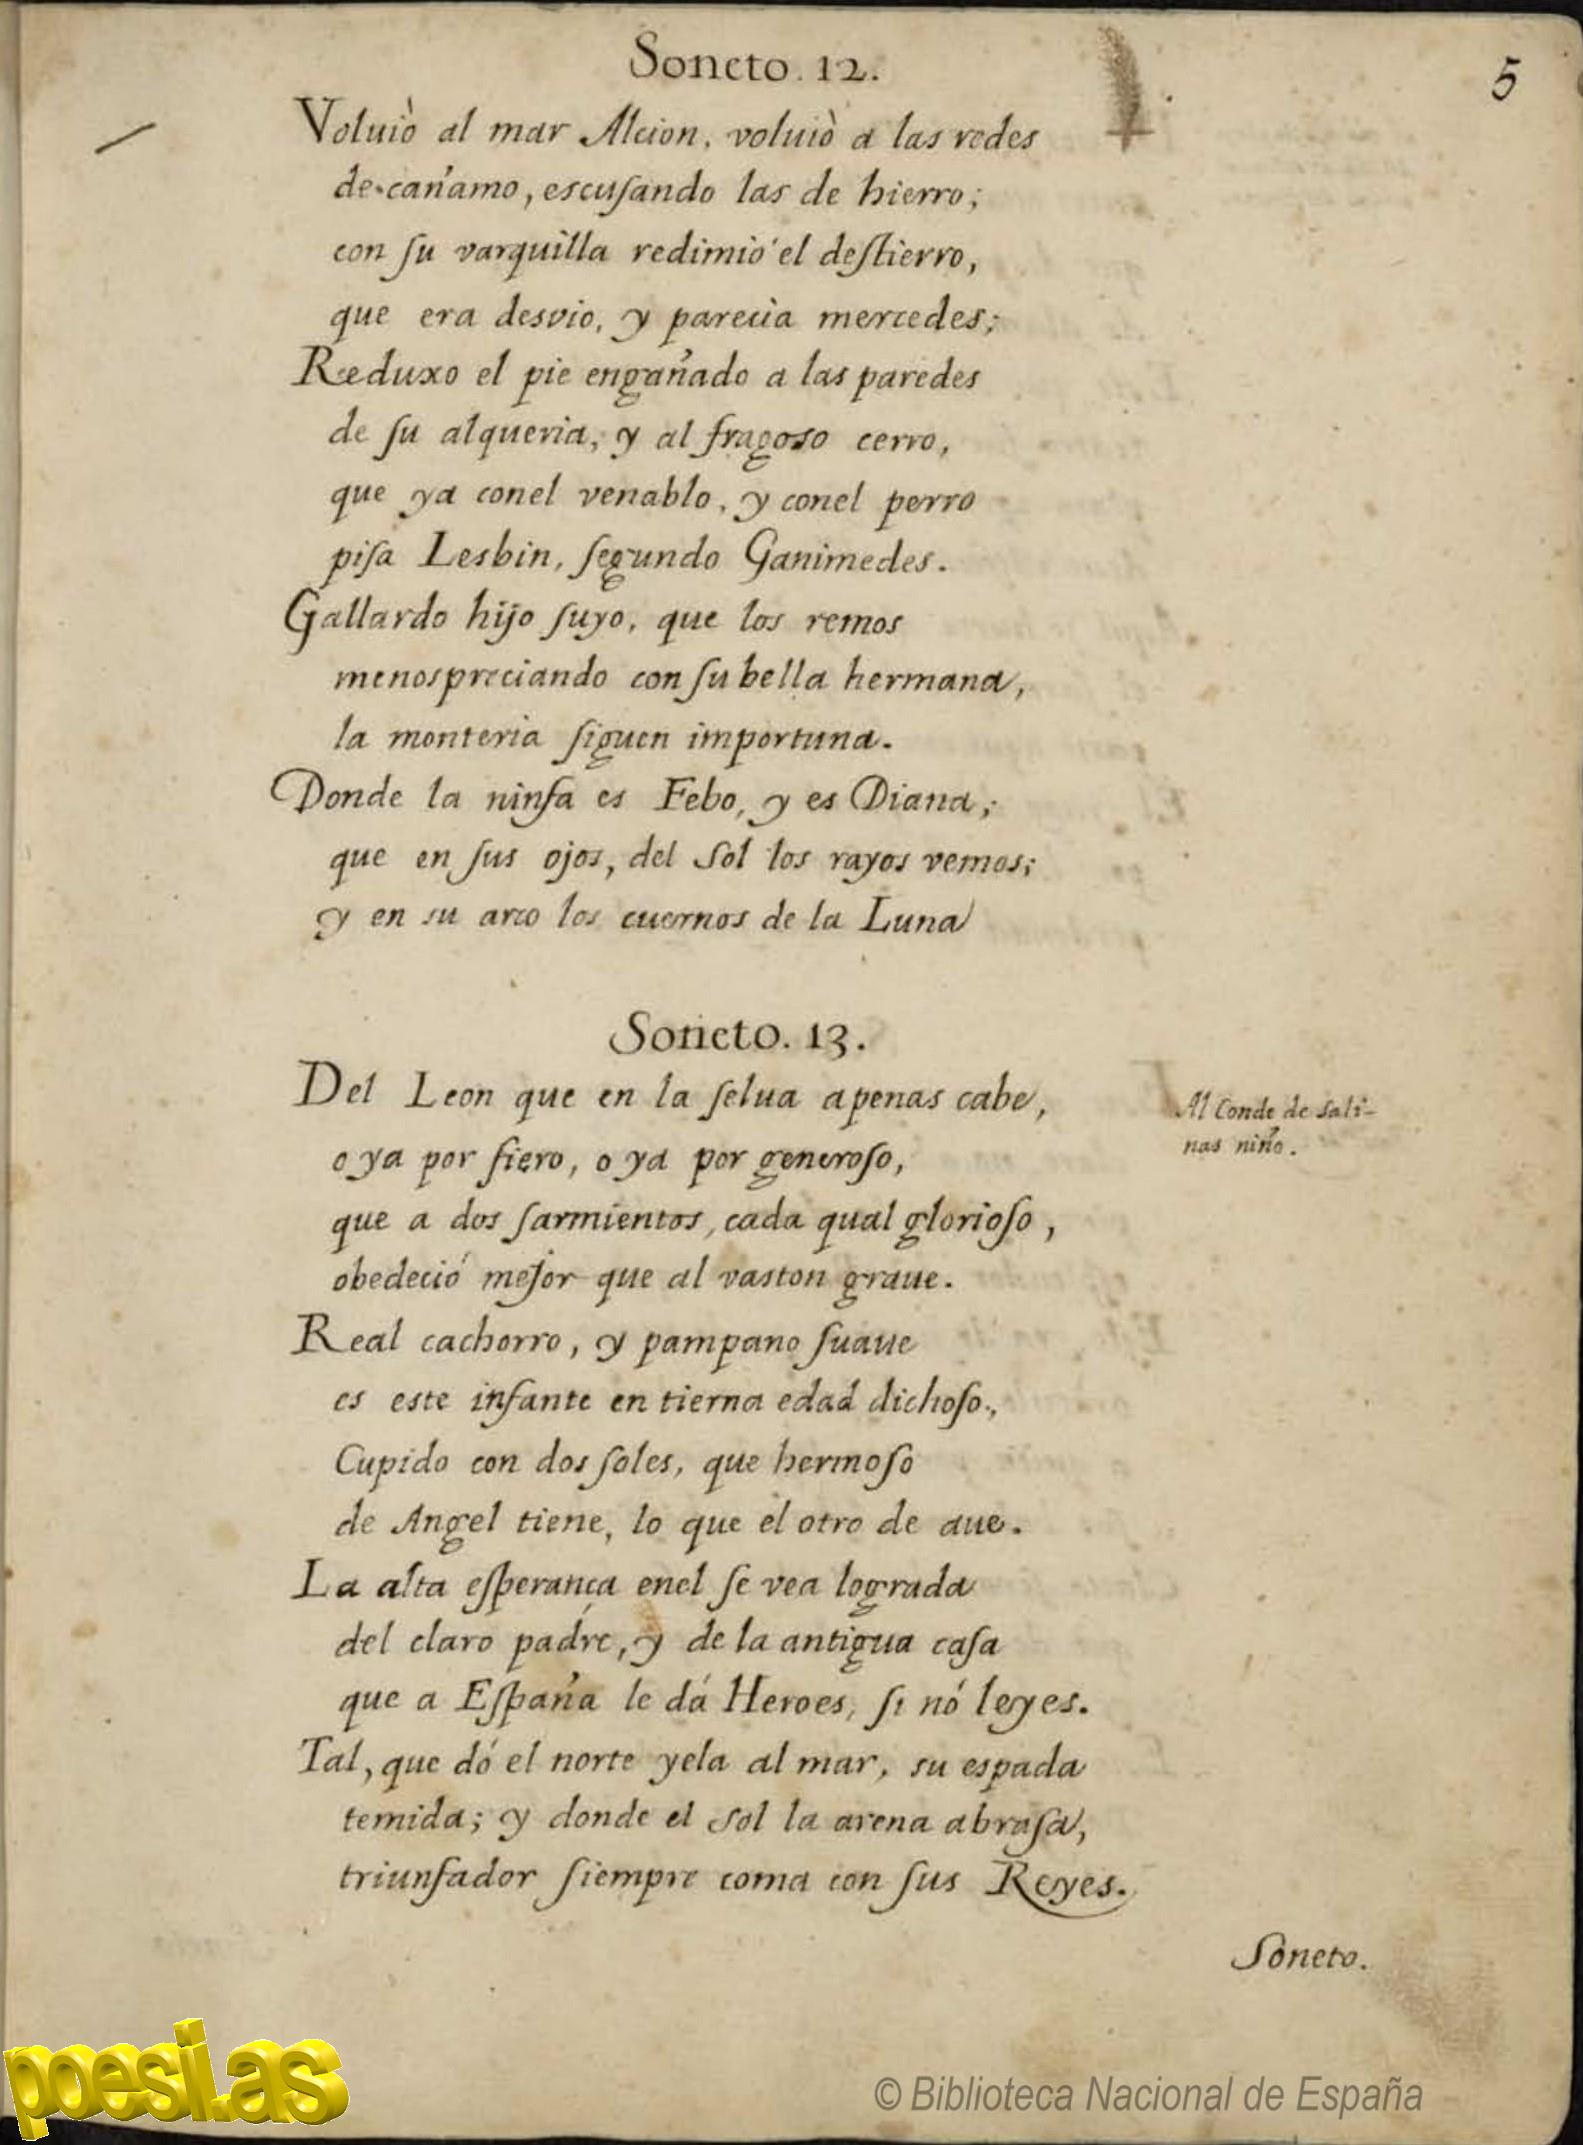 Soneto. 12.
5
Voluiò al mar Alcion, voluiò a las redes
de cañamo, escuſando las de hierro;
con ſu varquilla redimiò el deſtierro,
que era desvio, y parecia mercedes;
Reduxo el pie engañado a las paredes
de ſu alqueria, y al fragoso cerro,
que ya conel venablo, y conel perro
piſa Lesbin, ſegundo Ganimedes.
Gallardo hijo ſuyo, que los remos
menospreciando con ſu bella hermana,
la monteria ſiguen importuna.
Donde la ninfa es Febo, y es Diana;
que en ſus ojos, del Sol los rayos vemos;
y en su arco los cuernos de la Luna
Soneto. 13.
Del Leon que en la ſelua apenas cabe,
o ya por fiero, o ya por generoſo,
que a dos ſarmientos, cada qual glorioſo,
obedeció mejor que al vaston graue.
Real cachorro, y pampano ſuaue
es este infante en tierna edad dichoſo,
Cupido con dos ſoles, que hermoſo
de Angel tiene, lo que el otro de aue.
La alta eſperança enel ſe vea lograda
del claro padre, y de la antigua caſa
que a Eſpaña le dá Heroes, ſi nó leyes.
Tal, que dó el norte yela al mar, su espada
temida; y donde el Sol la arena abraſa,
triunfador ſiempre coma con ſus Reyes.
Al Conde de Sali-
nas niño.
Soneto.
poesi.as
© Biblioteca Nacional de España